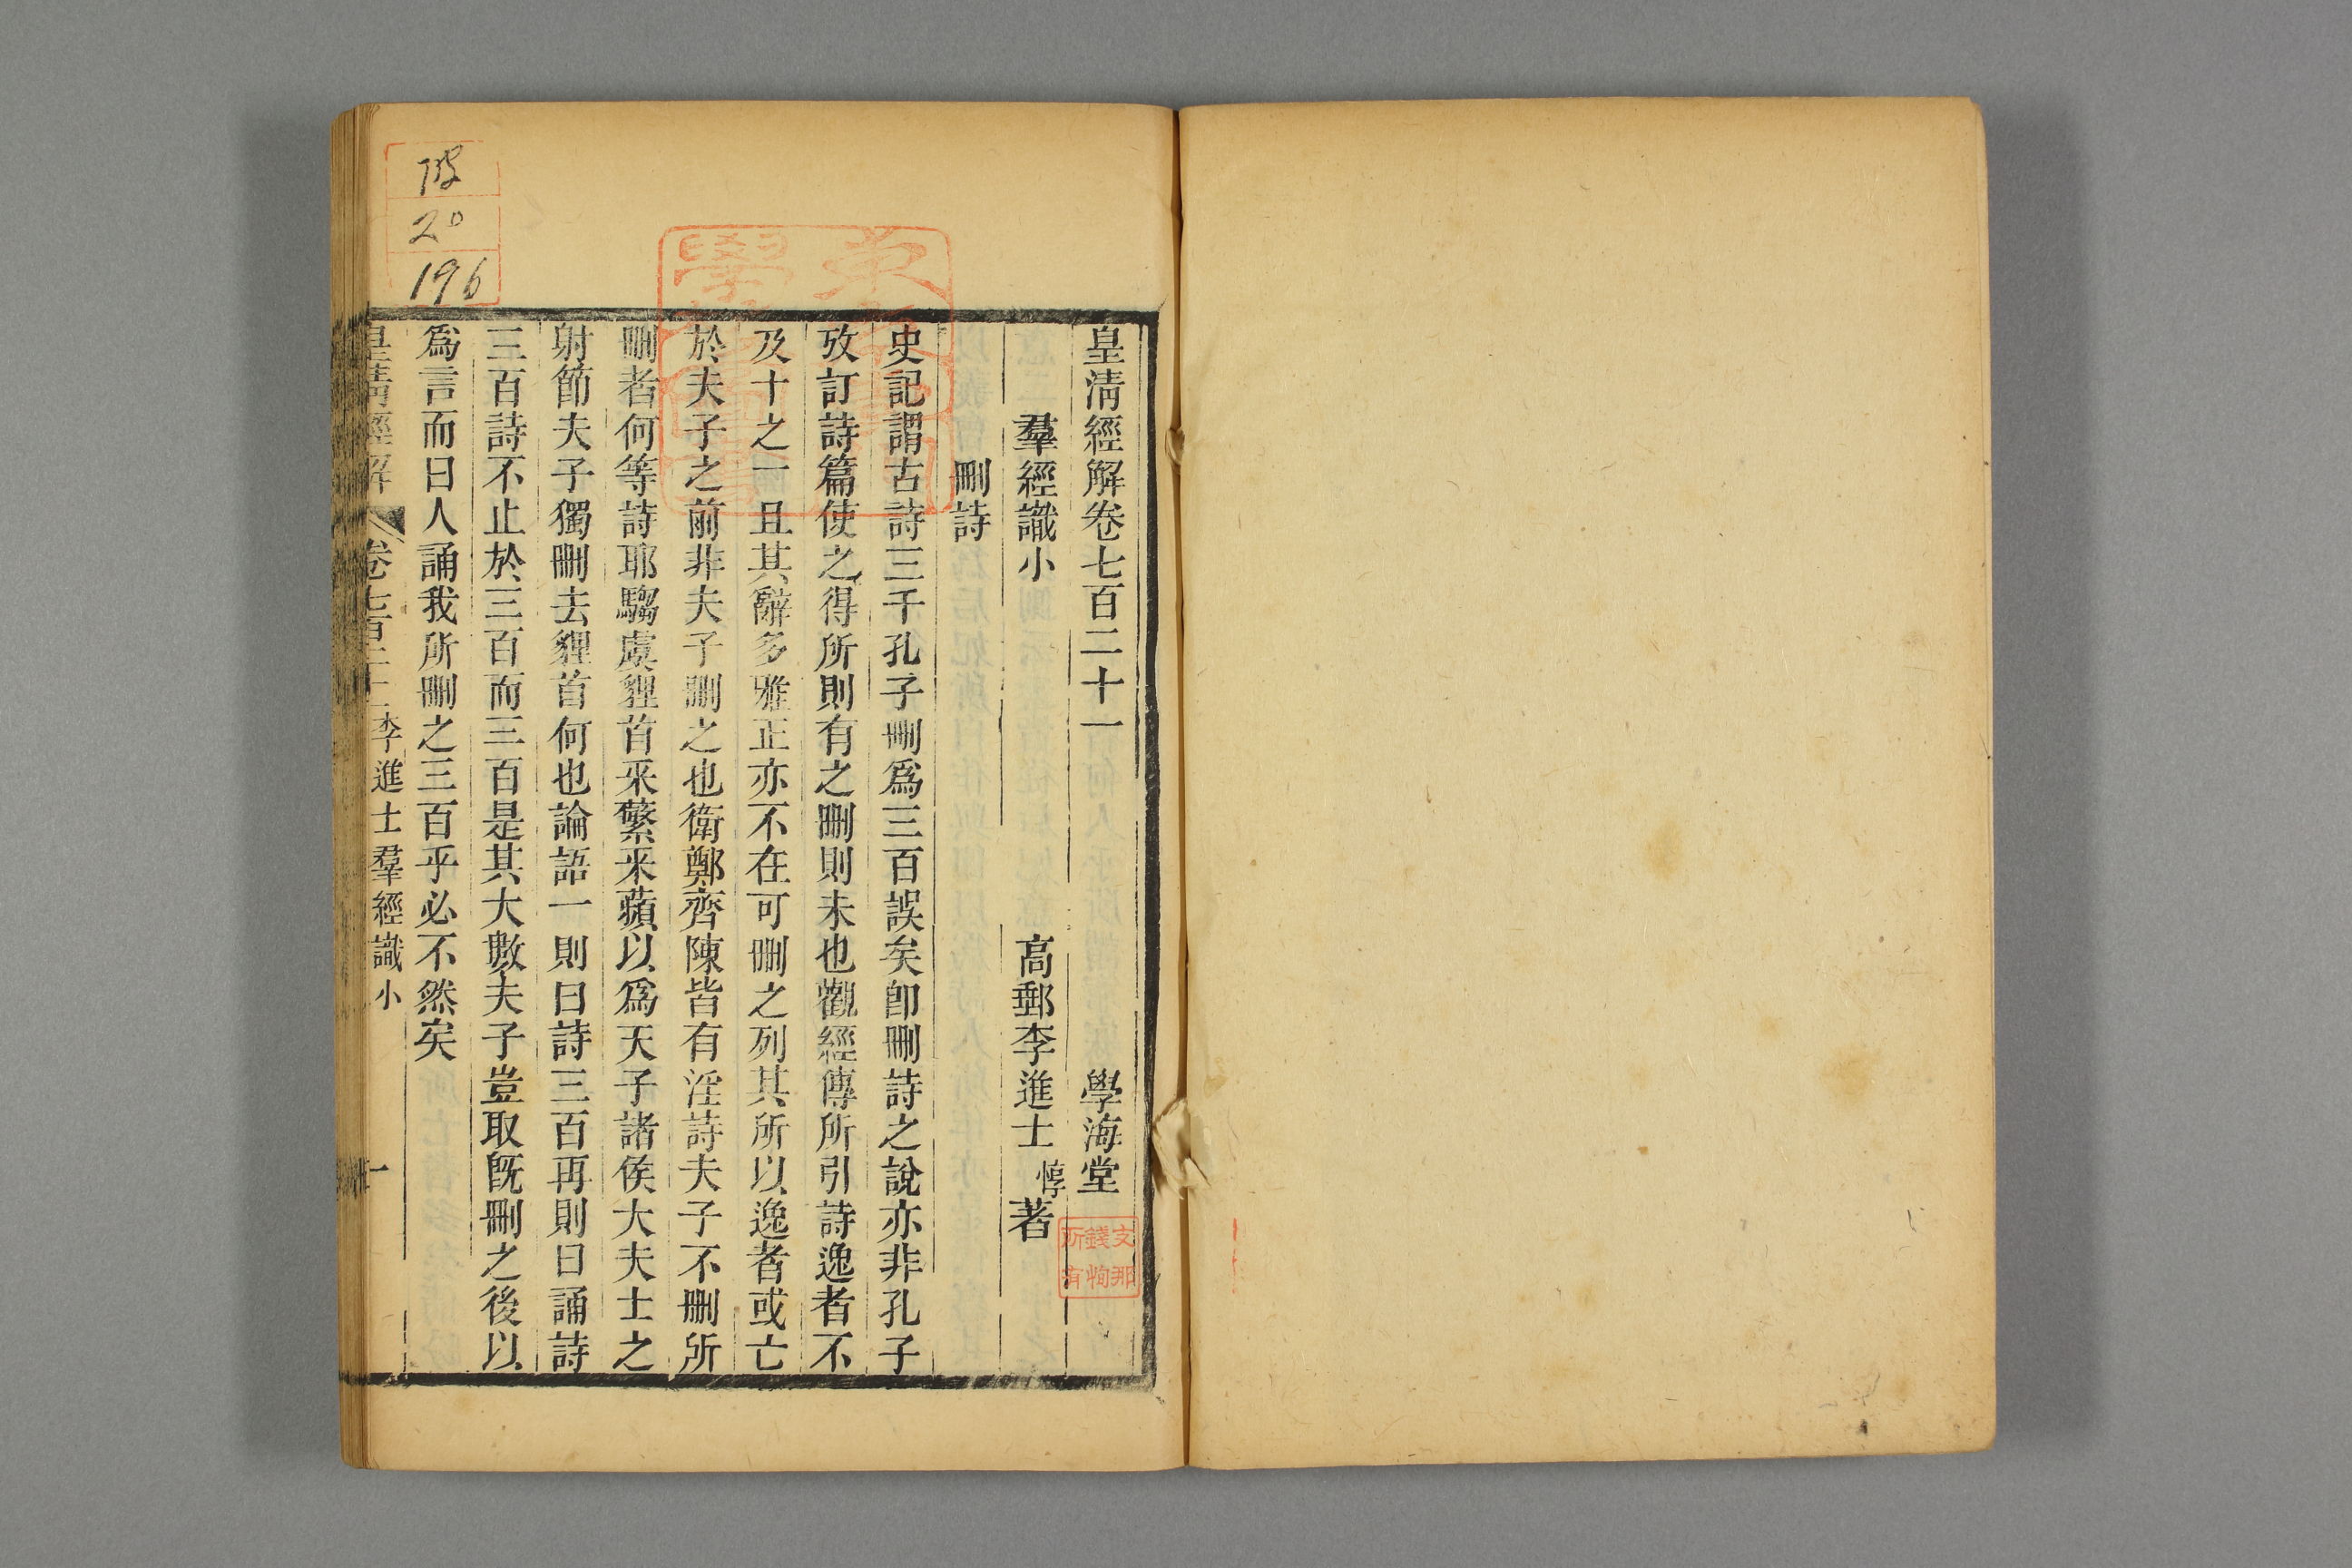 皇清經解卷七百二十一　學海堂
羣經識小　高郵李進士惇著
刪詩
史記謂古詩三千孔子刪爲三百誤矣卽刪詩之說亦非孔子
攷訂詩篇使之得所則有之刪則未也觀經傳所引詩逸者不
及十之一且其辭多雅正亦不在可刪之列其所以逸者或亡
於夫子之前非夫子刪之也衛鄭齊陳皆有淫詩夫子不刪所
刪者何等詩耶騶虞貍首采蘩采蘋以爲天子諸侯大夫士之
射節夫子獨刪去貍首何也論語一則曰詩三百再則曰誦詩
三百詩不止於三百而三百是其大數夫子豈取旣刪之後以
爲言而曰人誦我所刪之三百乎必不然矣
皇清經解　卷七百二十一李進士羣經識小　一
支那
錢恂
所有
20
196